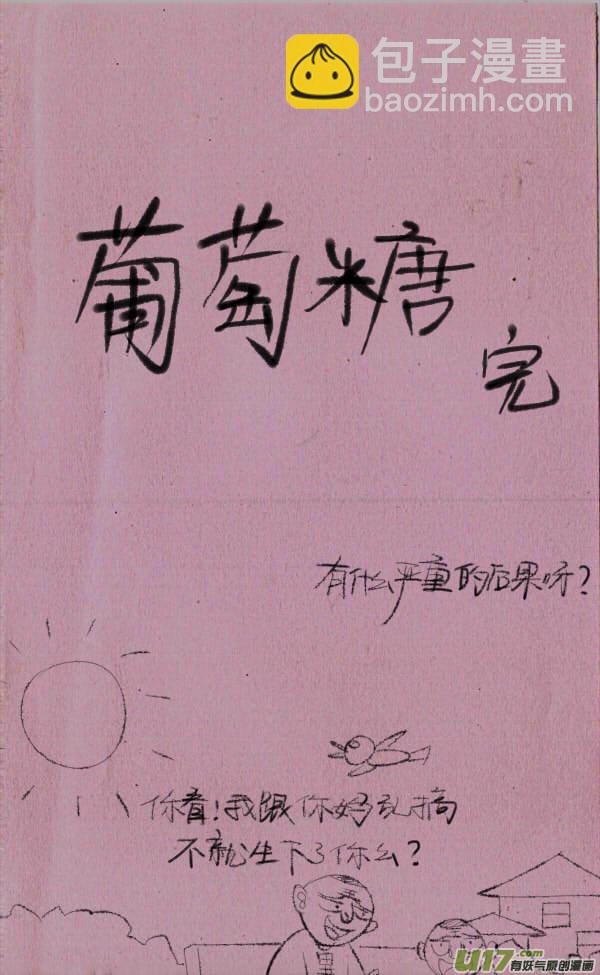 包子漫畫
baozimh.com
葡萄糖
完
有什么严重的后果呀?
你看!我跟你妈乱搞
不就生下了你么?
U17.com
有妖气原创漫画